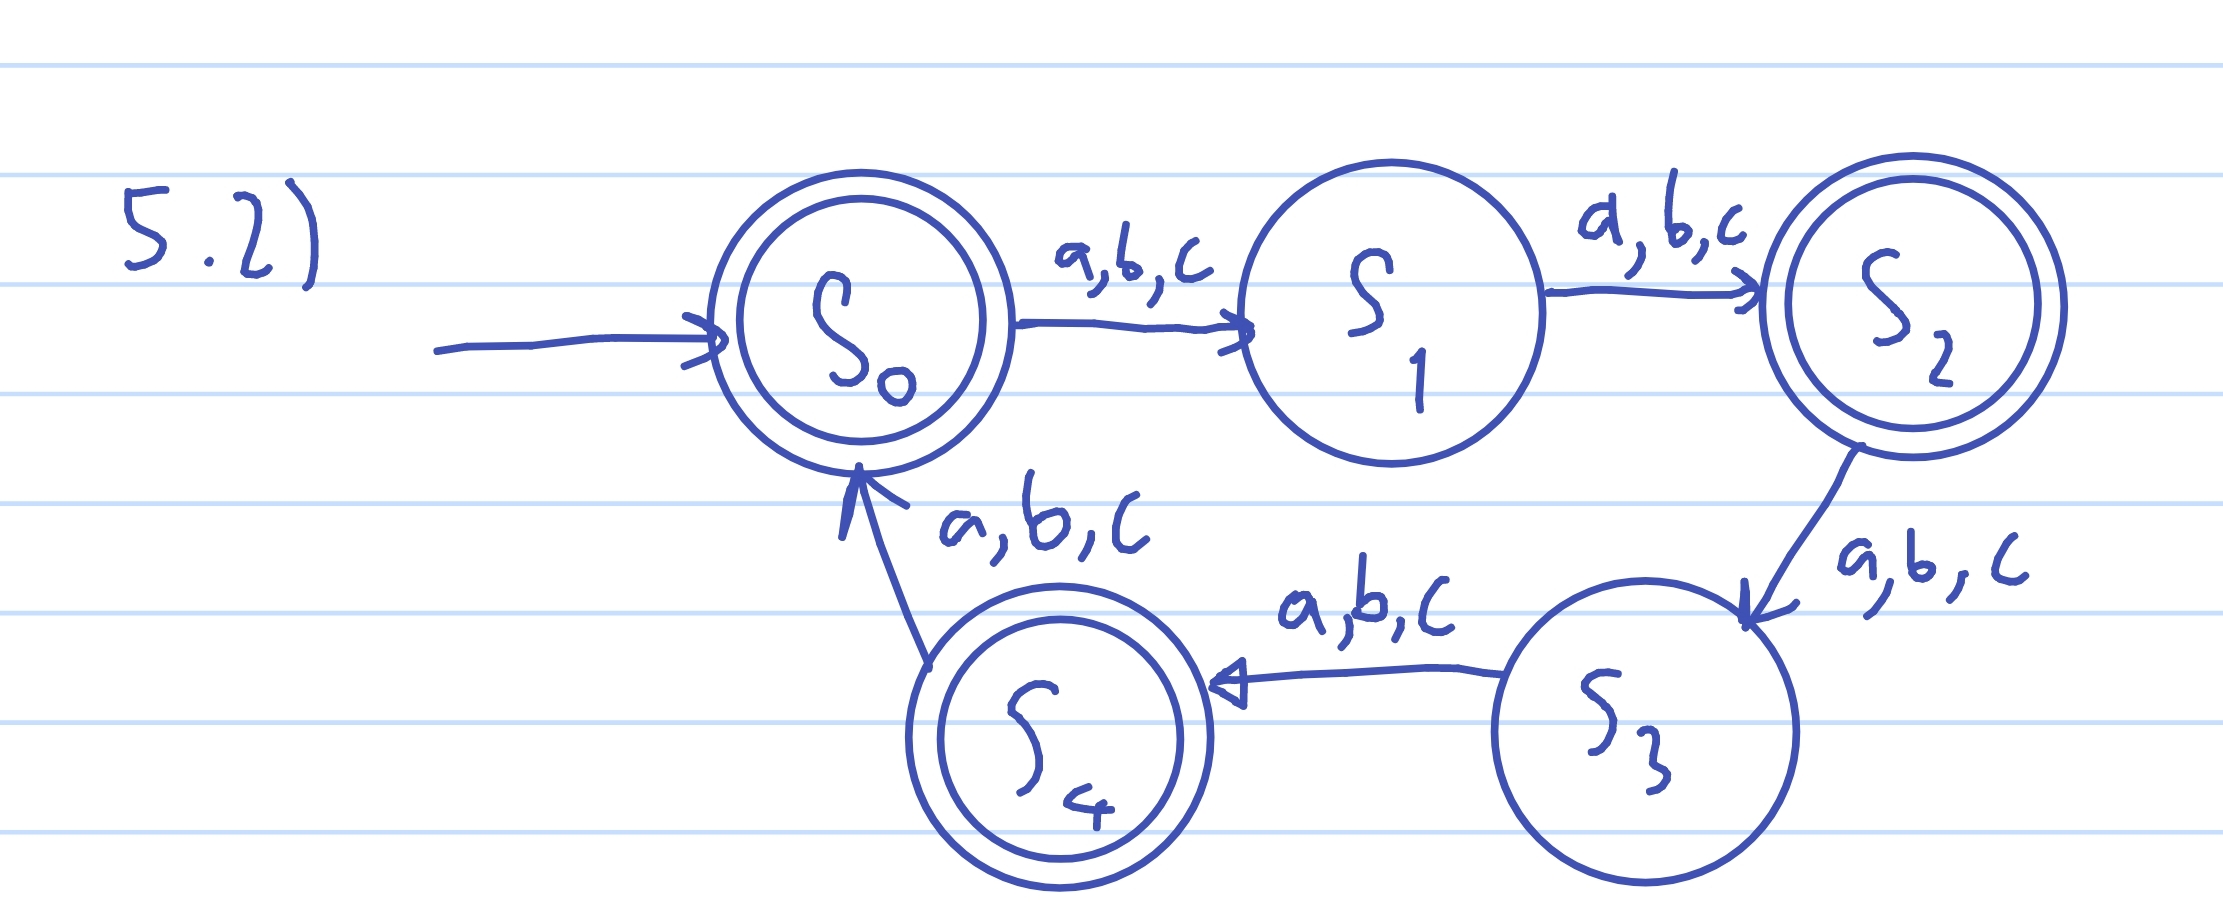 5.2)
S0 a,b,c S1 a,b,c S2
a,b,c a,b,c a,b,c
S4 S3